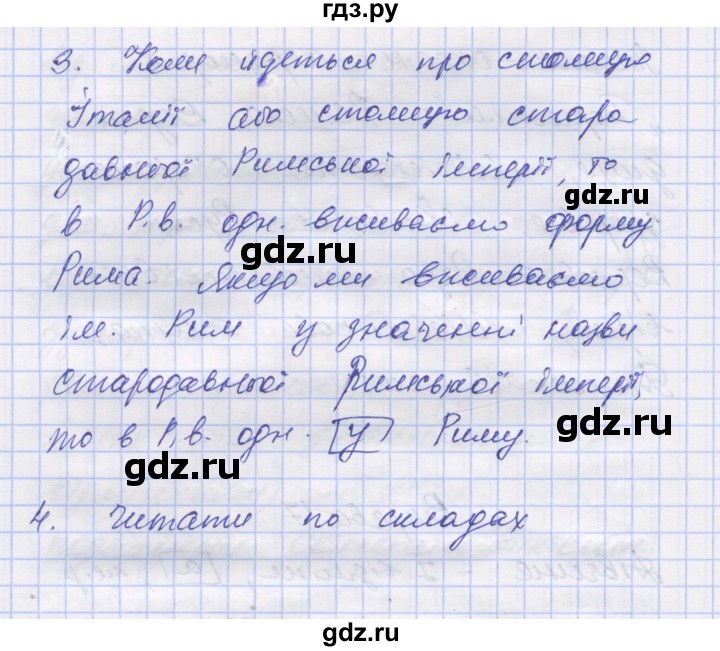 гдз.ру
3. Коли йдеться про столицю
Італії або столицю старо
давньої Римської імперії, то
gdz.ru
в Р.в. одн. вживаємо форму
gdz.ru
Рима. Якщо ми вживаємо
ім. Рим у значенні назви
стародавньої Римської імперії,
то в Р.в. одн. у Риму.
gdz.ru
gdz.ru
4. Читати по складах
gdz.ru
gdz.ru